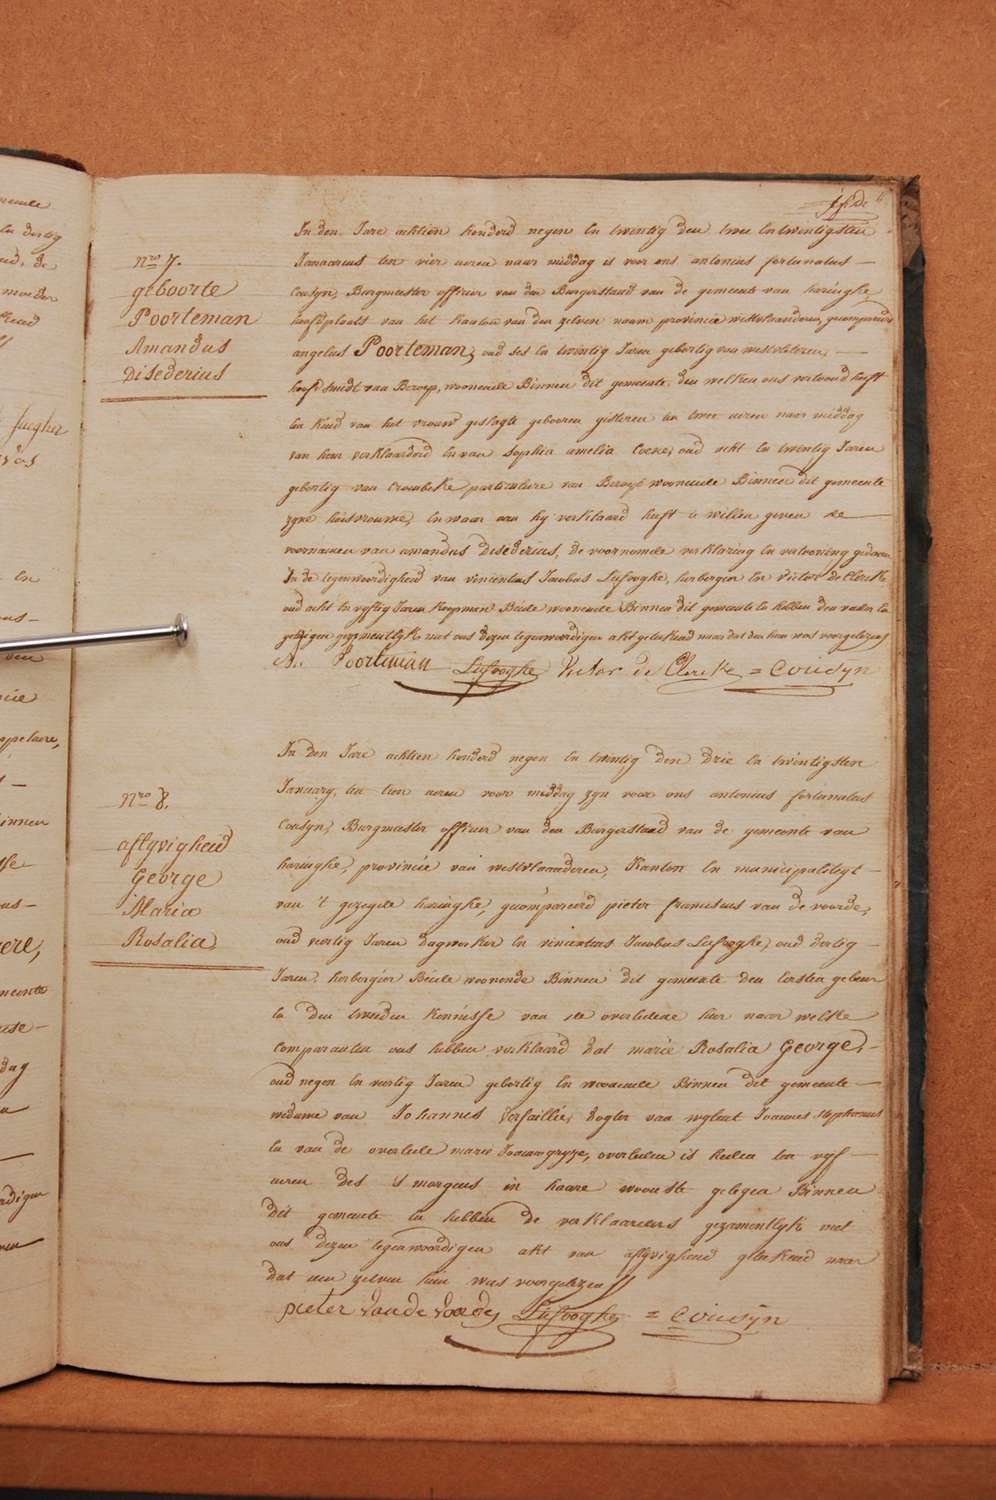 In den Jare achtien honderd negen en twintig den twee en twintigsten
Nro 7.
geboorte
Poorteman
Amandus
Disederius
Januarius ten vier uren naer middag is voor ons antonius fortunatus
Cousyn, Burgmeester officier van den Burgerstaed van de gemeente van haringhe,
hoofdplaats van het kanton van den zelven naem provincie westvlaanderen, gecompareerd
angelus Poorteman, oud ses en twintig Jaren gebortig van westvleteren,
hoefsmidt van Beroep, woonende Binnen dit gemeente, den welken ons vertoond heeft
een kind van het vrouw geslagte gebooren gisteren ten twee uren naer middag
van hem verklaarderd en van Sophia amelia Coene, oud acht en twintig Jaren
gebortig van Crombeke particuliere van Beroep woonende Binnen dit gemeente
zyne huisvrouwe, en waer aen hy verklaard heeft te willen geven de
voornamen van amandus Disederius, de voornoemde verklaring en vertooning gedaen
In de tegenwoordigheid van vincentius Jacobus Lafooghe, herbergier en Victor de Clerck
oud acht en vyftig Jaren koopman Beide woonende Binnen dit gemeente en hebben den vader en
getuigen gezamentlyk met ons dezen tegenwoordigen akt geteekend naer dat den hun was voorgelezen
A. Poorteman Lafooghe Victor de Clerck = Cousyn
In den Jare achtien honderd negen en twintig den drie en twintigsten
Nro 8.
aflyvigheid
George
Maria
Rosalia
January, ten tien uren voor middag zyn voor ons antonius fortunatus
Cousyn, Burgmeester officier van den Burgerstaed van de gemeente van
haringhe, provincie van westvlaanderen, Kanton en municipaliteyt
van 't gezegde haringhe, gecompareerd pieter franciscus van de voorde,
oud veertig Jaren dagwerker en vincentius Jacobus Lafooghe, oud dertig
Jaren, herbergier Beide woonende Binnen dit gemeente den eersten gebeur
en den tweeden kennisse van de overledene hier naer welke
comparanten ons hebben verklaard dat marie Rosalia George,
oud negen en veertig Jaren gebortig en woonende Binnen dit gemeente
weduwe van Johannes Versaillie, dogter van wylent Joannes stephanus
en van de overlede marie Joanna gryze, overleden is heden ten vyf
uren des 's morgens in haare wooniste gelegen Binnen
dit gemeente en hebben de verklaarers gezamentlyk met
ons dezen tegenwoordigen akt van aflyvigheid geteekend naer
dat aen zelven hun was voorgelezen
pieter Van de Voorde, Lafooghe = Cousyn